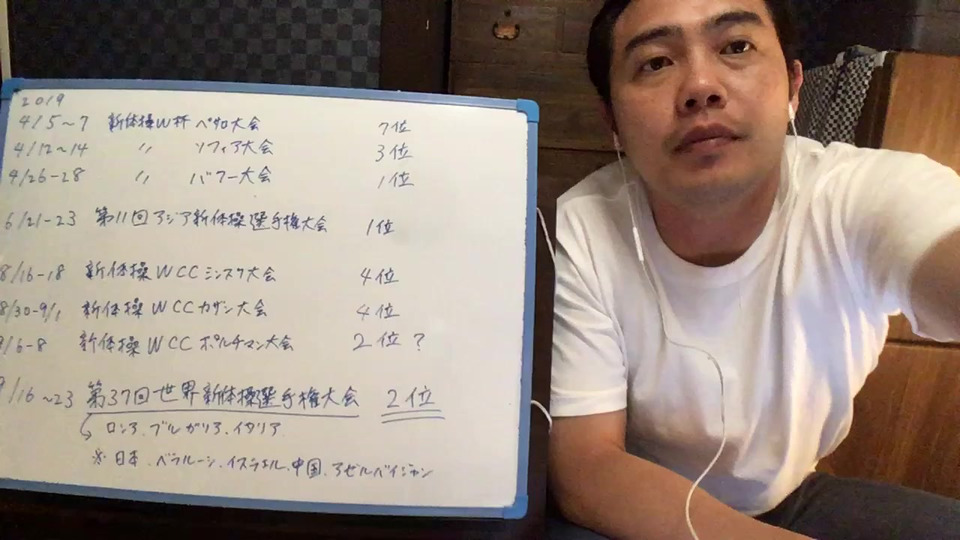 2019
4/5~7 新体操W杯 ペサロ大会 7位
4/12~14 〃 ソフィア大会 3位
4/26-28 〃 バクー大会 1位
6/21-23 第11回アジア新体操選手権大会 1位
8/16-18 新体操WCCミンスク大会 4位
8/30-9/1 新体操WCCカザン大会 4位
9/6-8 新体操WCCポルチマン大会 2位?
9/16~23 第37回世界新体操選手権大会 2位
ロシア、ブルガリア、イタリア
※日本、ベラルーシ、イスラエル、中国、アゼルバイジャン